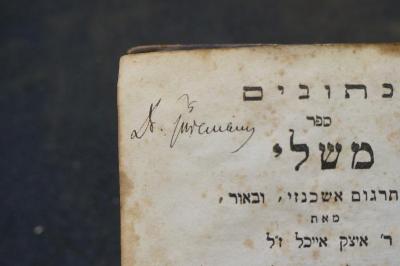 כתובים
Dr.
ספר
משלי
תרגום אשכנזי, ובאור,
מאת
ר' איצק אייכל ז"ל